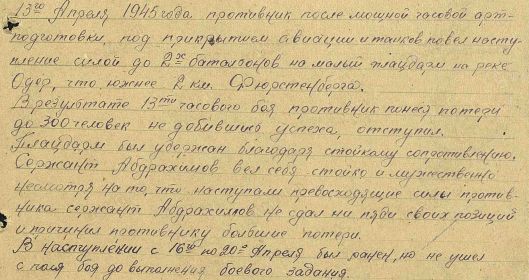 13го Апреля 1945 года противник после мощной часовой арт-
подготовки, под прикрытием авиации и танков повел насту-
пление силой до 2х баталионов на малый плацдарм на реке
Одер, что южнее 2 км. Фюрстенберга.
В результате 13ти часового боя противник понеся потери
до 300 человек не добившись успеха, отступил.
Плацдарм был удержан благодаря стойкому сопротивлению.
Сержант Абдрахимов вел себя стойко и мужественно
несмотря на то, что наступали превосходящие силы против-
ника сержант Абдрахимов не сдал ни пяди своих позиций
и причинил противнику большие потери.
В наступлении с 16го по 20е Апреля был ранен, но не ушел
с поля боя до выполнения боевого задания.